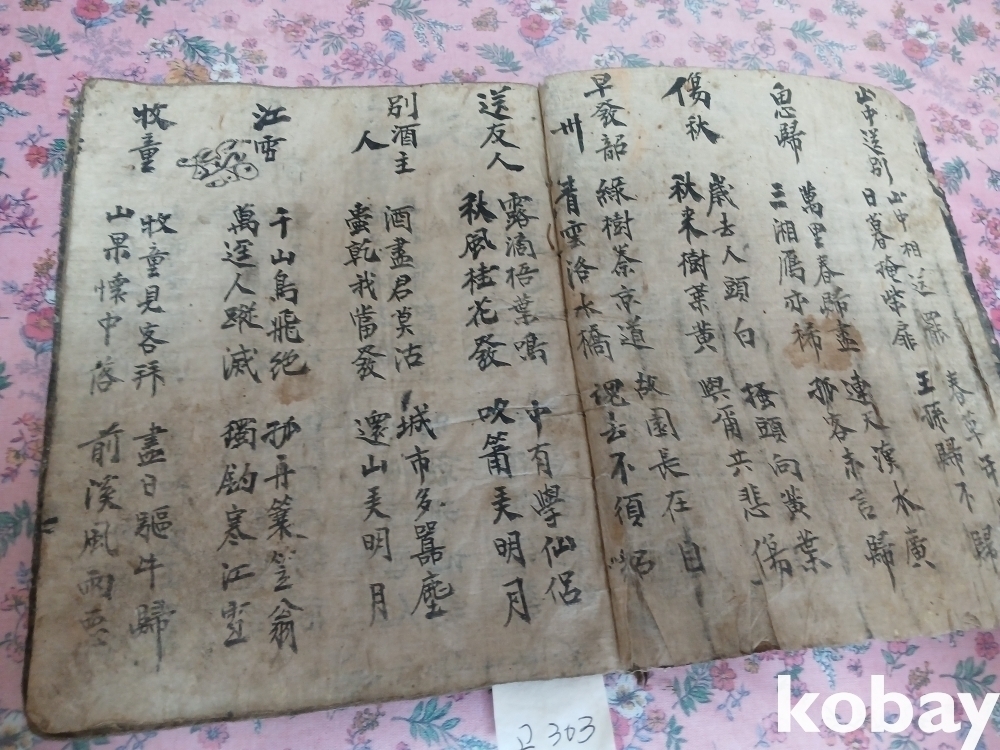 山中送別
山中相送罷 春草年
日暮掩柴扉 王孫歸不
思歸
萬里春歸盡 連天漢水廣
三湘鴈亦稀 孤客未言歸
傷秋
歲去人頭白 搔頭向黃葉
秋來樹葉黃 與爾共悲傷
早發韶
州
綠樹秦京道 故園長在目
青雲洛水橋 魂去不須招
送友人
露滴梧葉鳴 中有學仙侶
秋風桂花發 吹簫弄明月
別酒主
人
酒盡君莫沽 城市多囂塵
壺乾我當發 還山弄明月
江雪
千山鳥飛絕 孤舟簑笠翁
萬逕人蹤滅 獨釣寒江雪
牧童
牧童見客拜 盡日驅牛歸
山果懷中落 前溪風雨惡
일 303
kobay